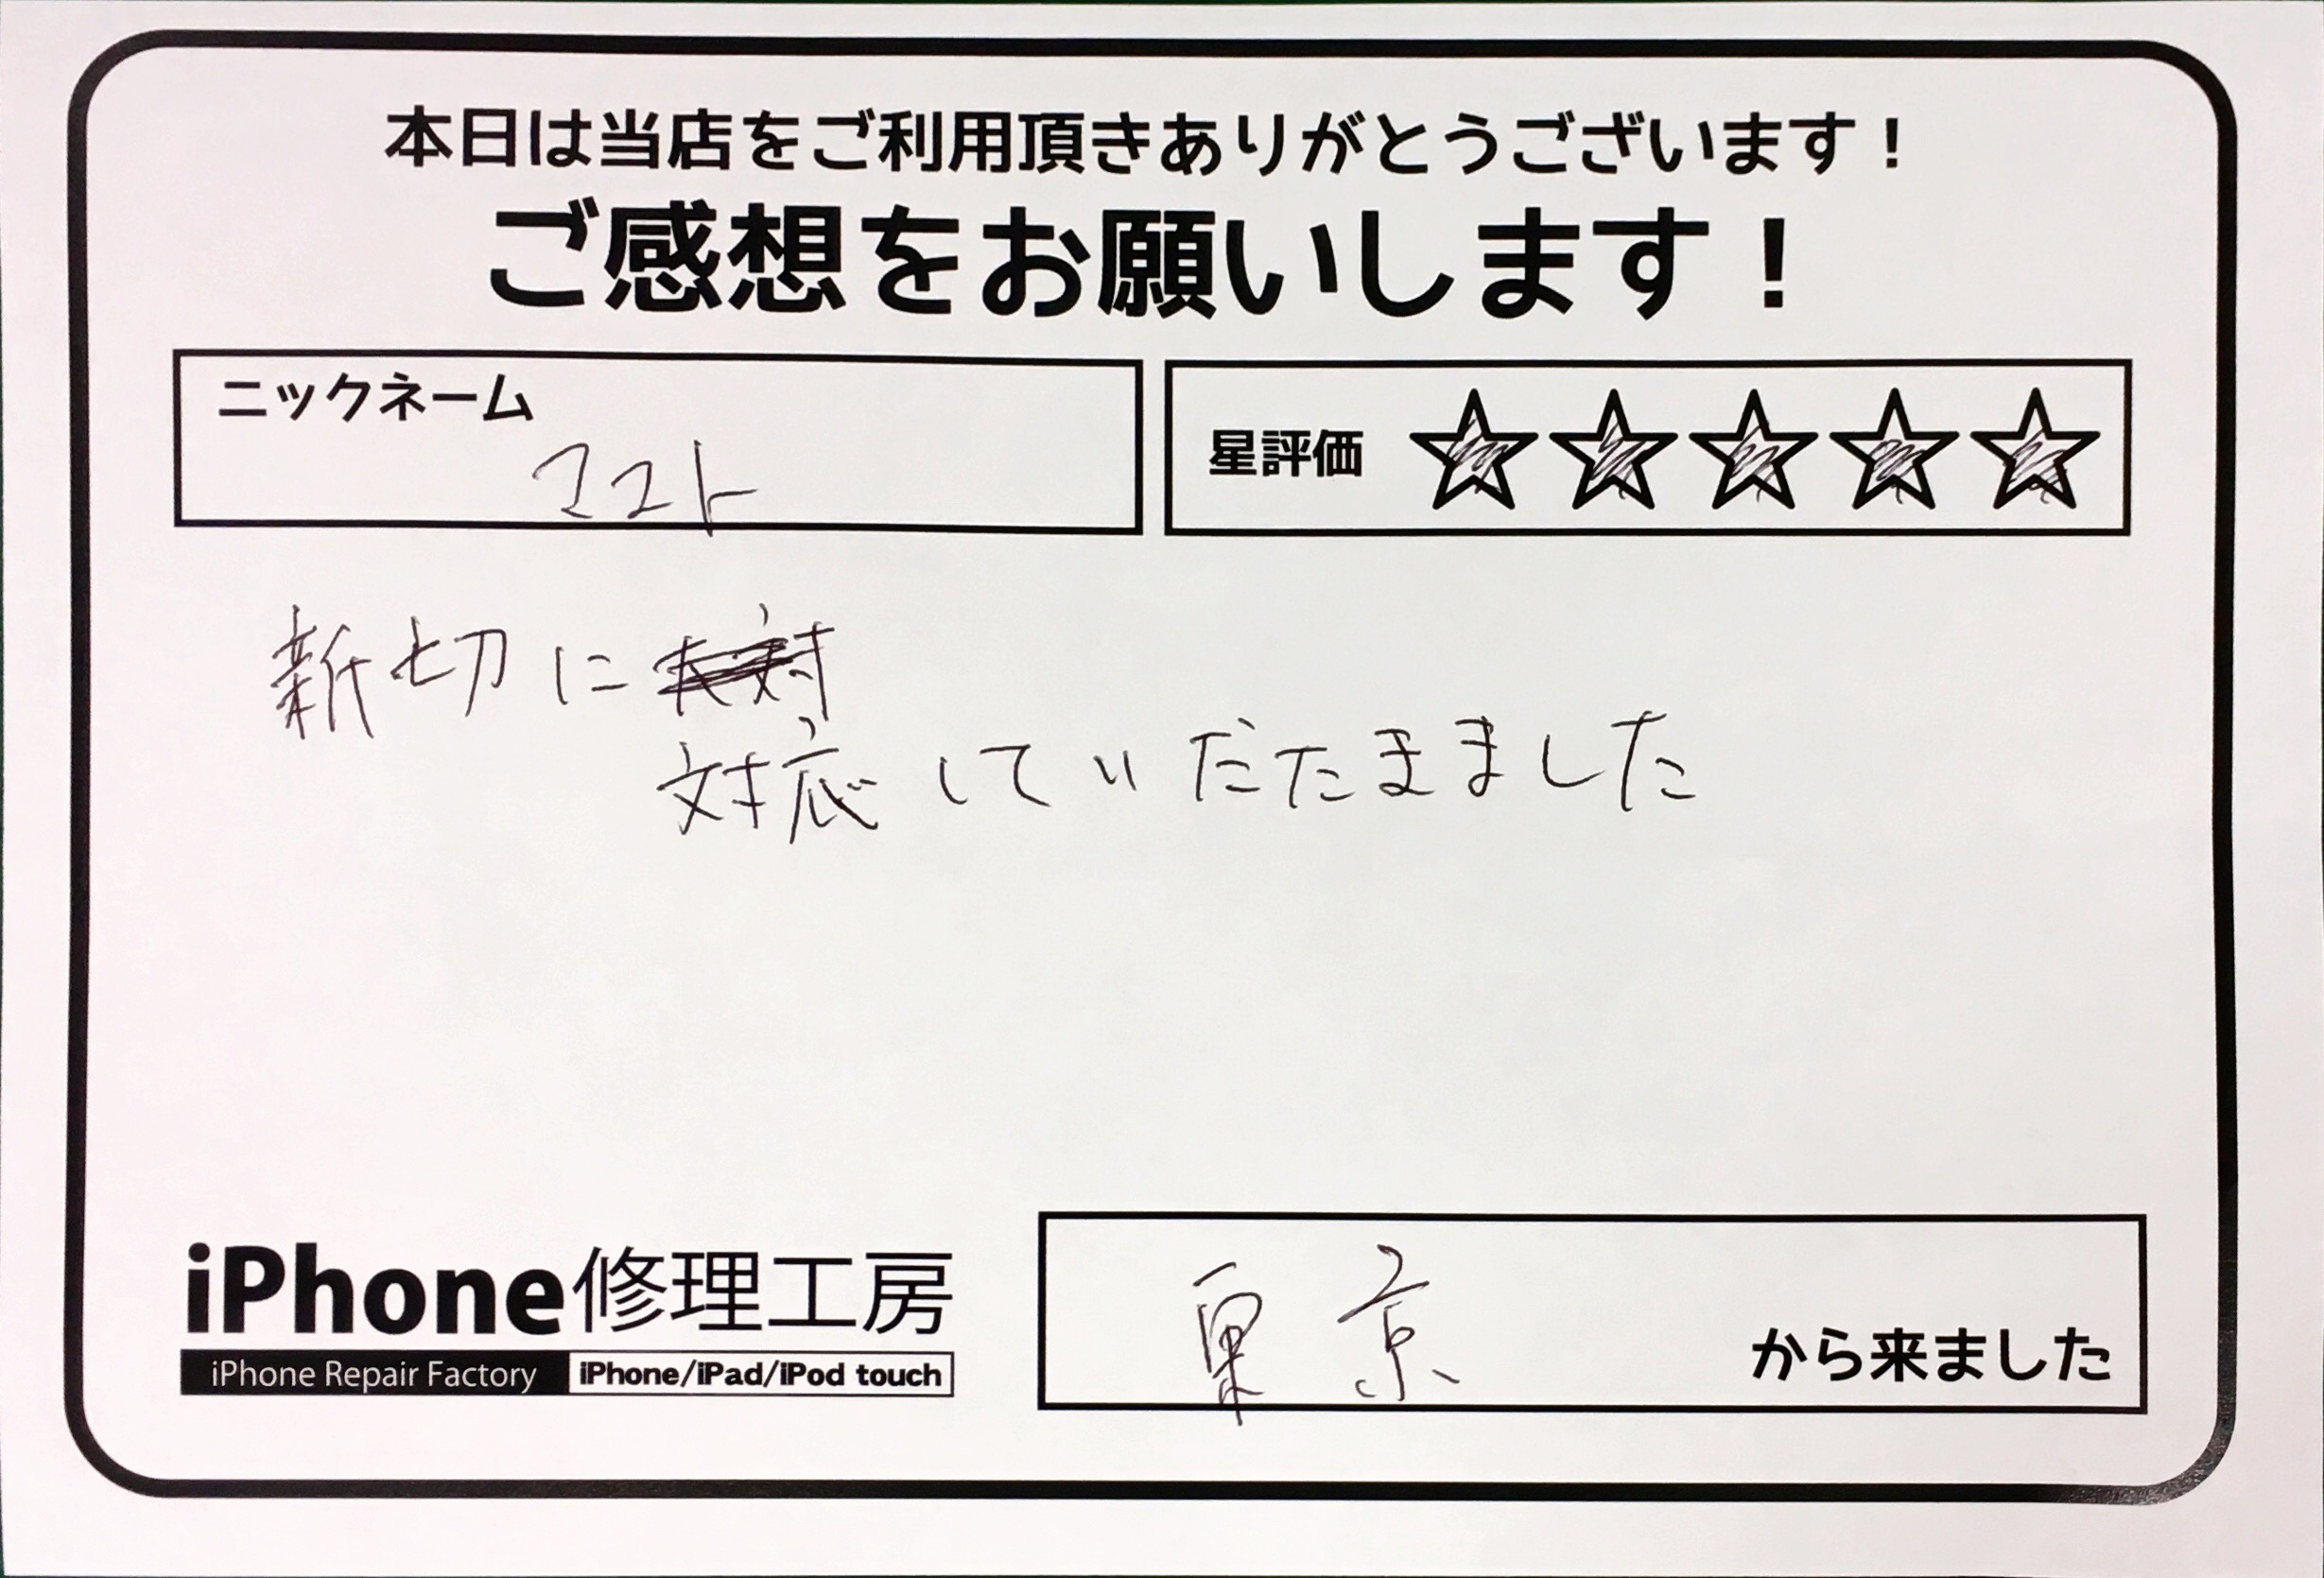 本日は当店をご利用頂きありがとうございます！
ご感想をお願いします！
ニックネーム
マユト
星評価 ☆☆☆☆☆
新切に
対応していだたきました
iPhone修理工房
iPhone Repair Factory iPhone/iPad/iPod touch
東京 から来ました